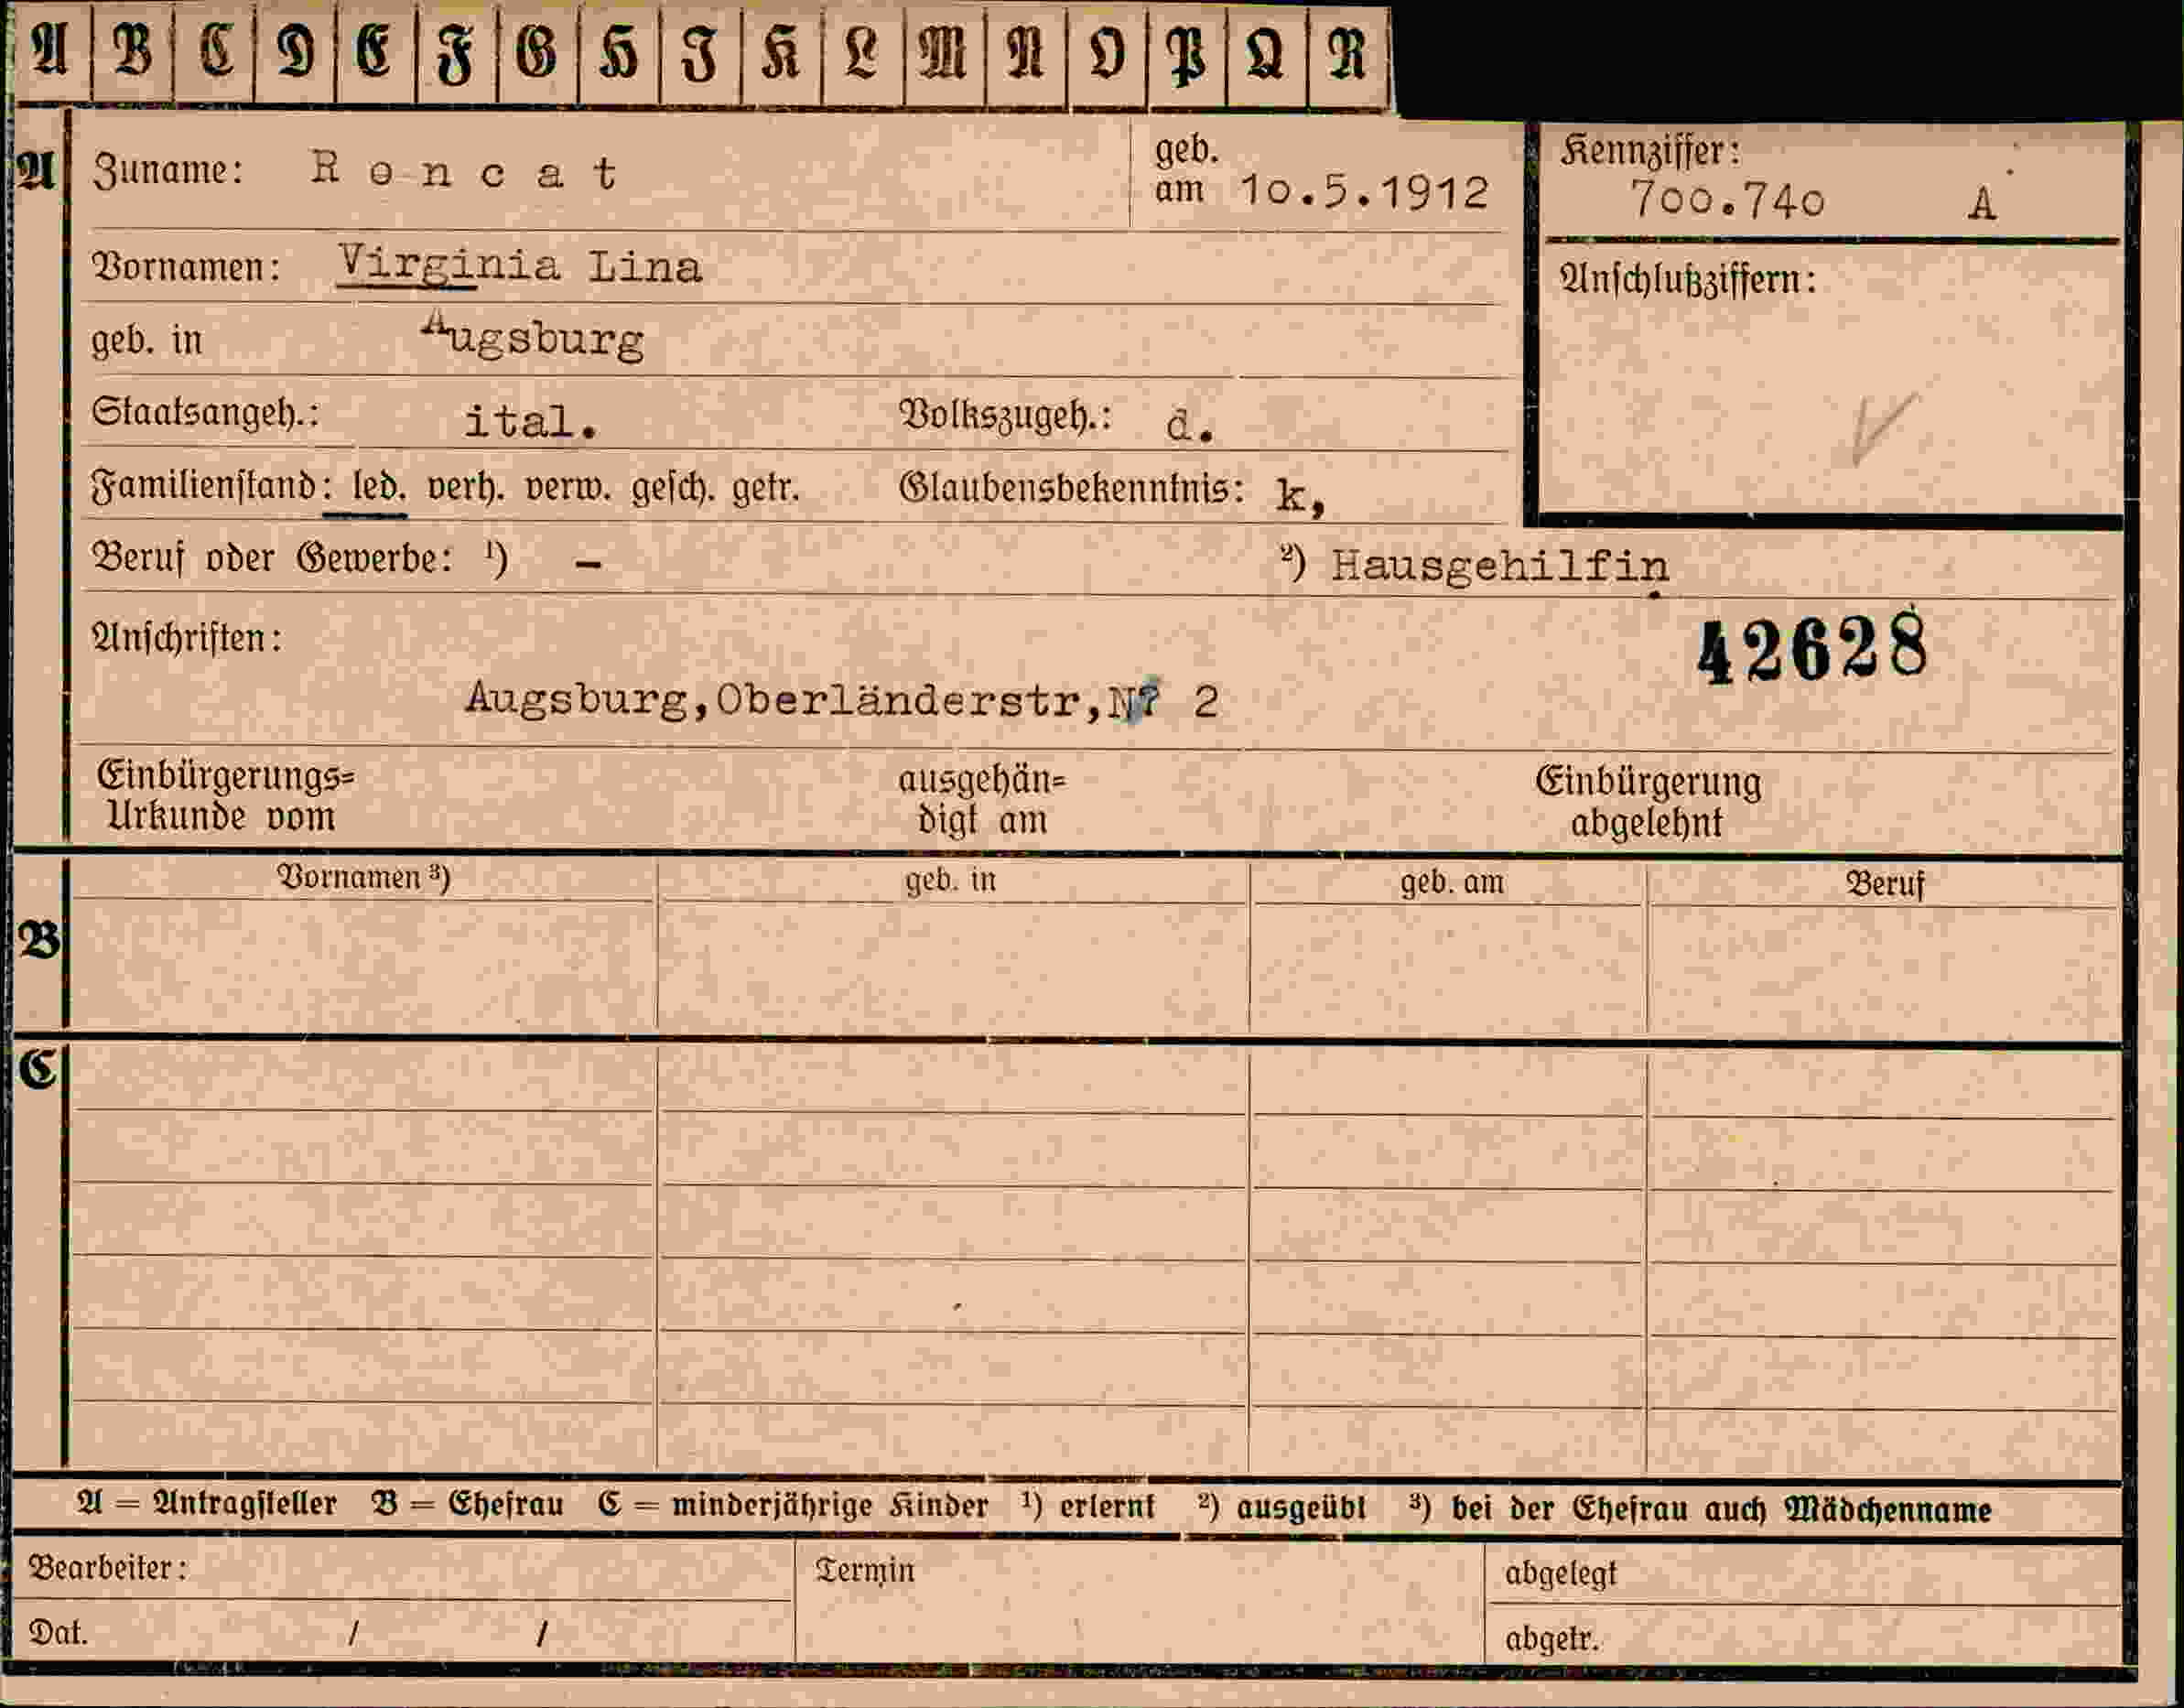 A B C D E F G H I K L M N O P Q R
A Zuname: Roncat geb. am 10.5.1912
Kennziffer: 700.740 A
Vornamen: Virginia Lina
Anschlußziffern:
geb. in Augsburg
Staatsangeh.: ital. Volkszugeh.: d.
Familienstand: led. verh. verw. gesch. getr. Glaubensbekenntnis: k,
Beruf oder Gewerbe: ¹) – ²) Hausgehilfin
Anschriften:
42628
Augsburg,Oberländerstr, 2
Einbürgerungs=
Urkunde vom
ausgehän=
digt am
Einbürgerung
abgelehnt
B Vornamen ³) geb. in geb. am Beruf
C
A = Antragsteller B = Ehefrau C = minderjährige Kinder ¹) erlernt ²) ausgeübt ³) bei der Ehefrau auch Mädchenname
Bearbeiter: Termin abgelegt
Dat. / / abgetr.